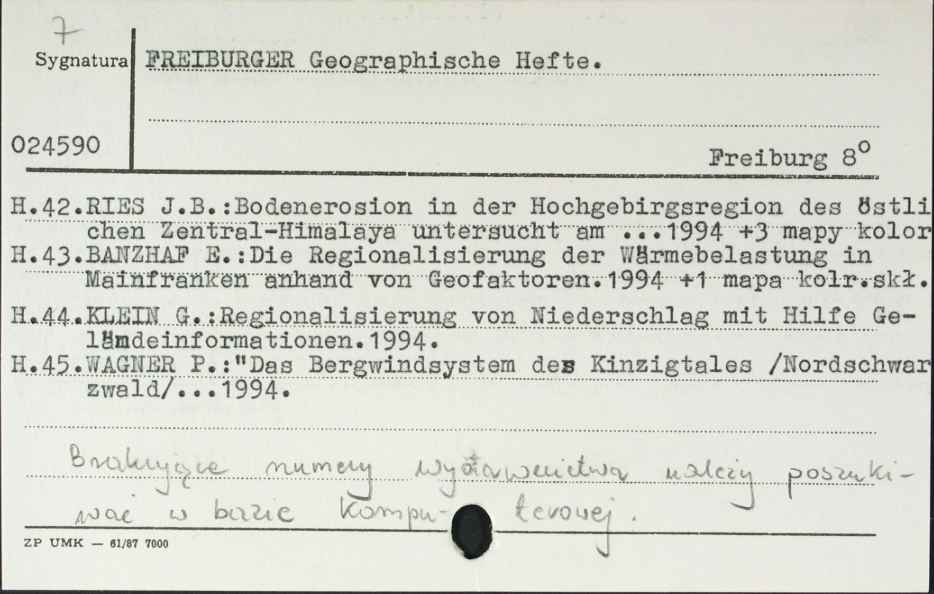 7
Sygnatura
FREIBURGER Geographische Hefte.
024590
Freiburg 8°
H.42.RIES J.B.:Bodenerosion in der Hochgebirgsregion des östli
chen Zentral-Himalaya untersucht am ...1994 +3 mapy kolor
H.43.BANZHAF E.:Die Regionalisierung der Wärmebelastung in
Mainfranken anhand von Geofaktoren.1994 +1 mapa kolr.skł.
H.44.KLEIN G.:Regionalisierung von Niederschlag mit Hilfe Ge-
lämdeinformationen.1994.
H.45.WAGNER P.:"Das Bergwindsystem des Kinzigtales /Nordschwar
zwald/...1994.
Brakujące numery wydawnictwa należy poszuki-
wać w bazie kompu- terowej.
ZP UMK — 61/87 7000